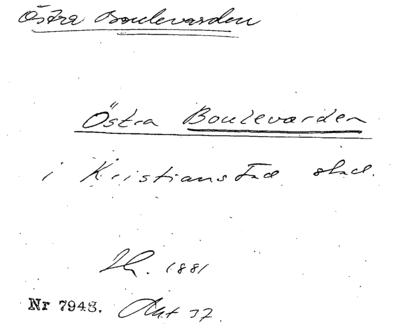 Östra Boulevarden
Östra Boulevarden
i Kristianstad stad.
Th. 1881
Nr 7943. Akt 37.